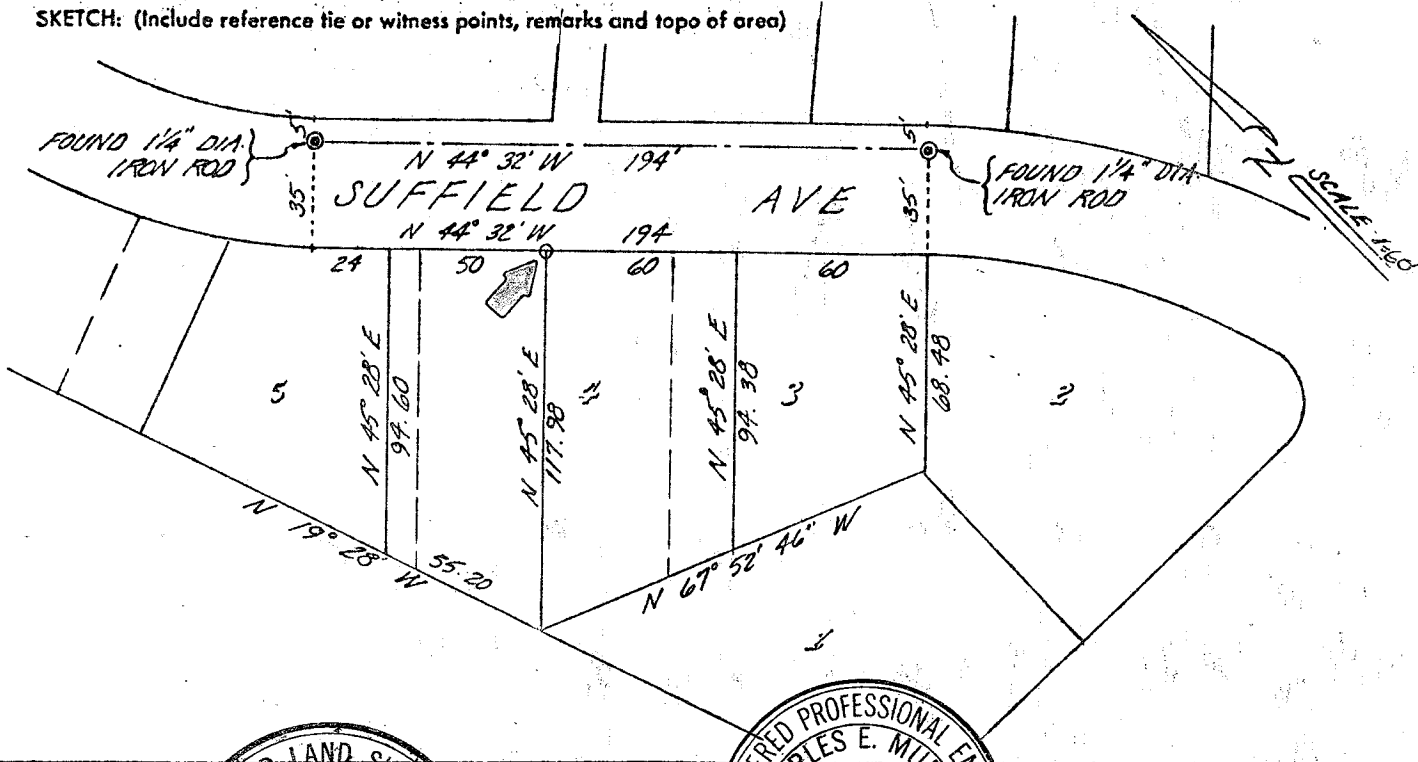 SKETCH: (Include reference tie or witness points, remarks and topo of area)
FOUND 1¼" DIA.
IRON ROD
5'
N 44° 32' W 194'
5'
FOUND 1¼" DIA
IRON ROD
N
SCALE 1=60
35'
SUFFIELD AVE
35'
N 44° 32' W 194
24 50 60 60
5
N 45° 28' E
94.60
N 45° 28' E
117.98
4
N 45° 28' E
94.38
3
N 45° 28' E
68.48
2
N 19° 28' W
55.20
N 67° 52' 46" W
1
LAND
PROFESSIONAL
E.